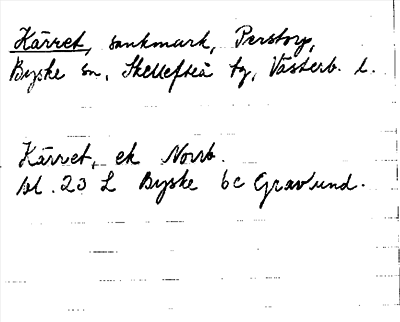 Kärret, sankmark, Perstorp,
Byske sn, Skellefteå tg, Västerb. l.
Kärret, ek Norrb.
bl. 23 L Byske 6c Gravund.